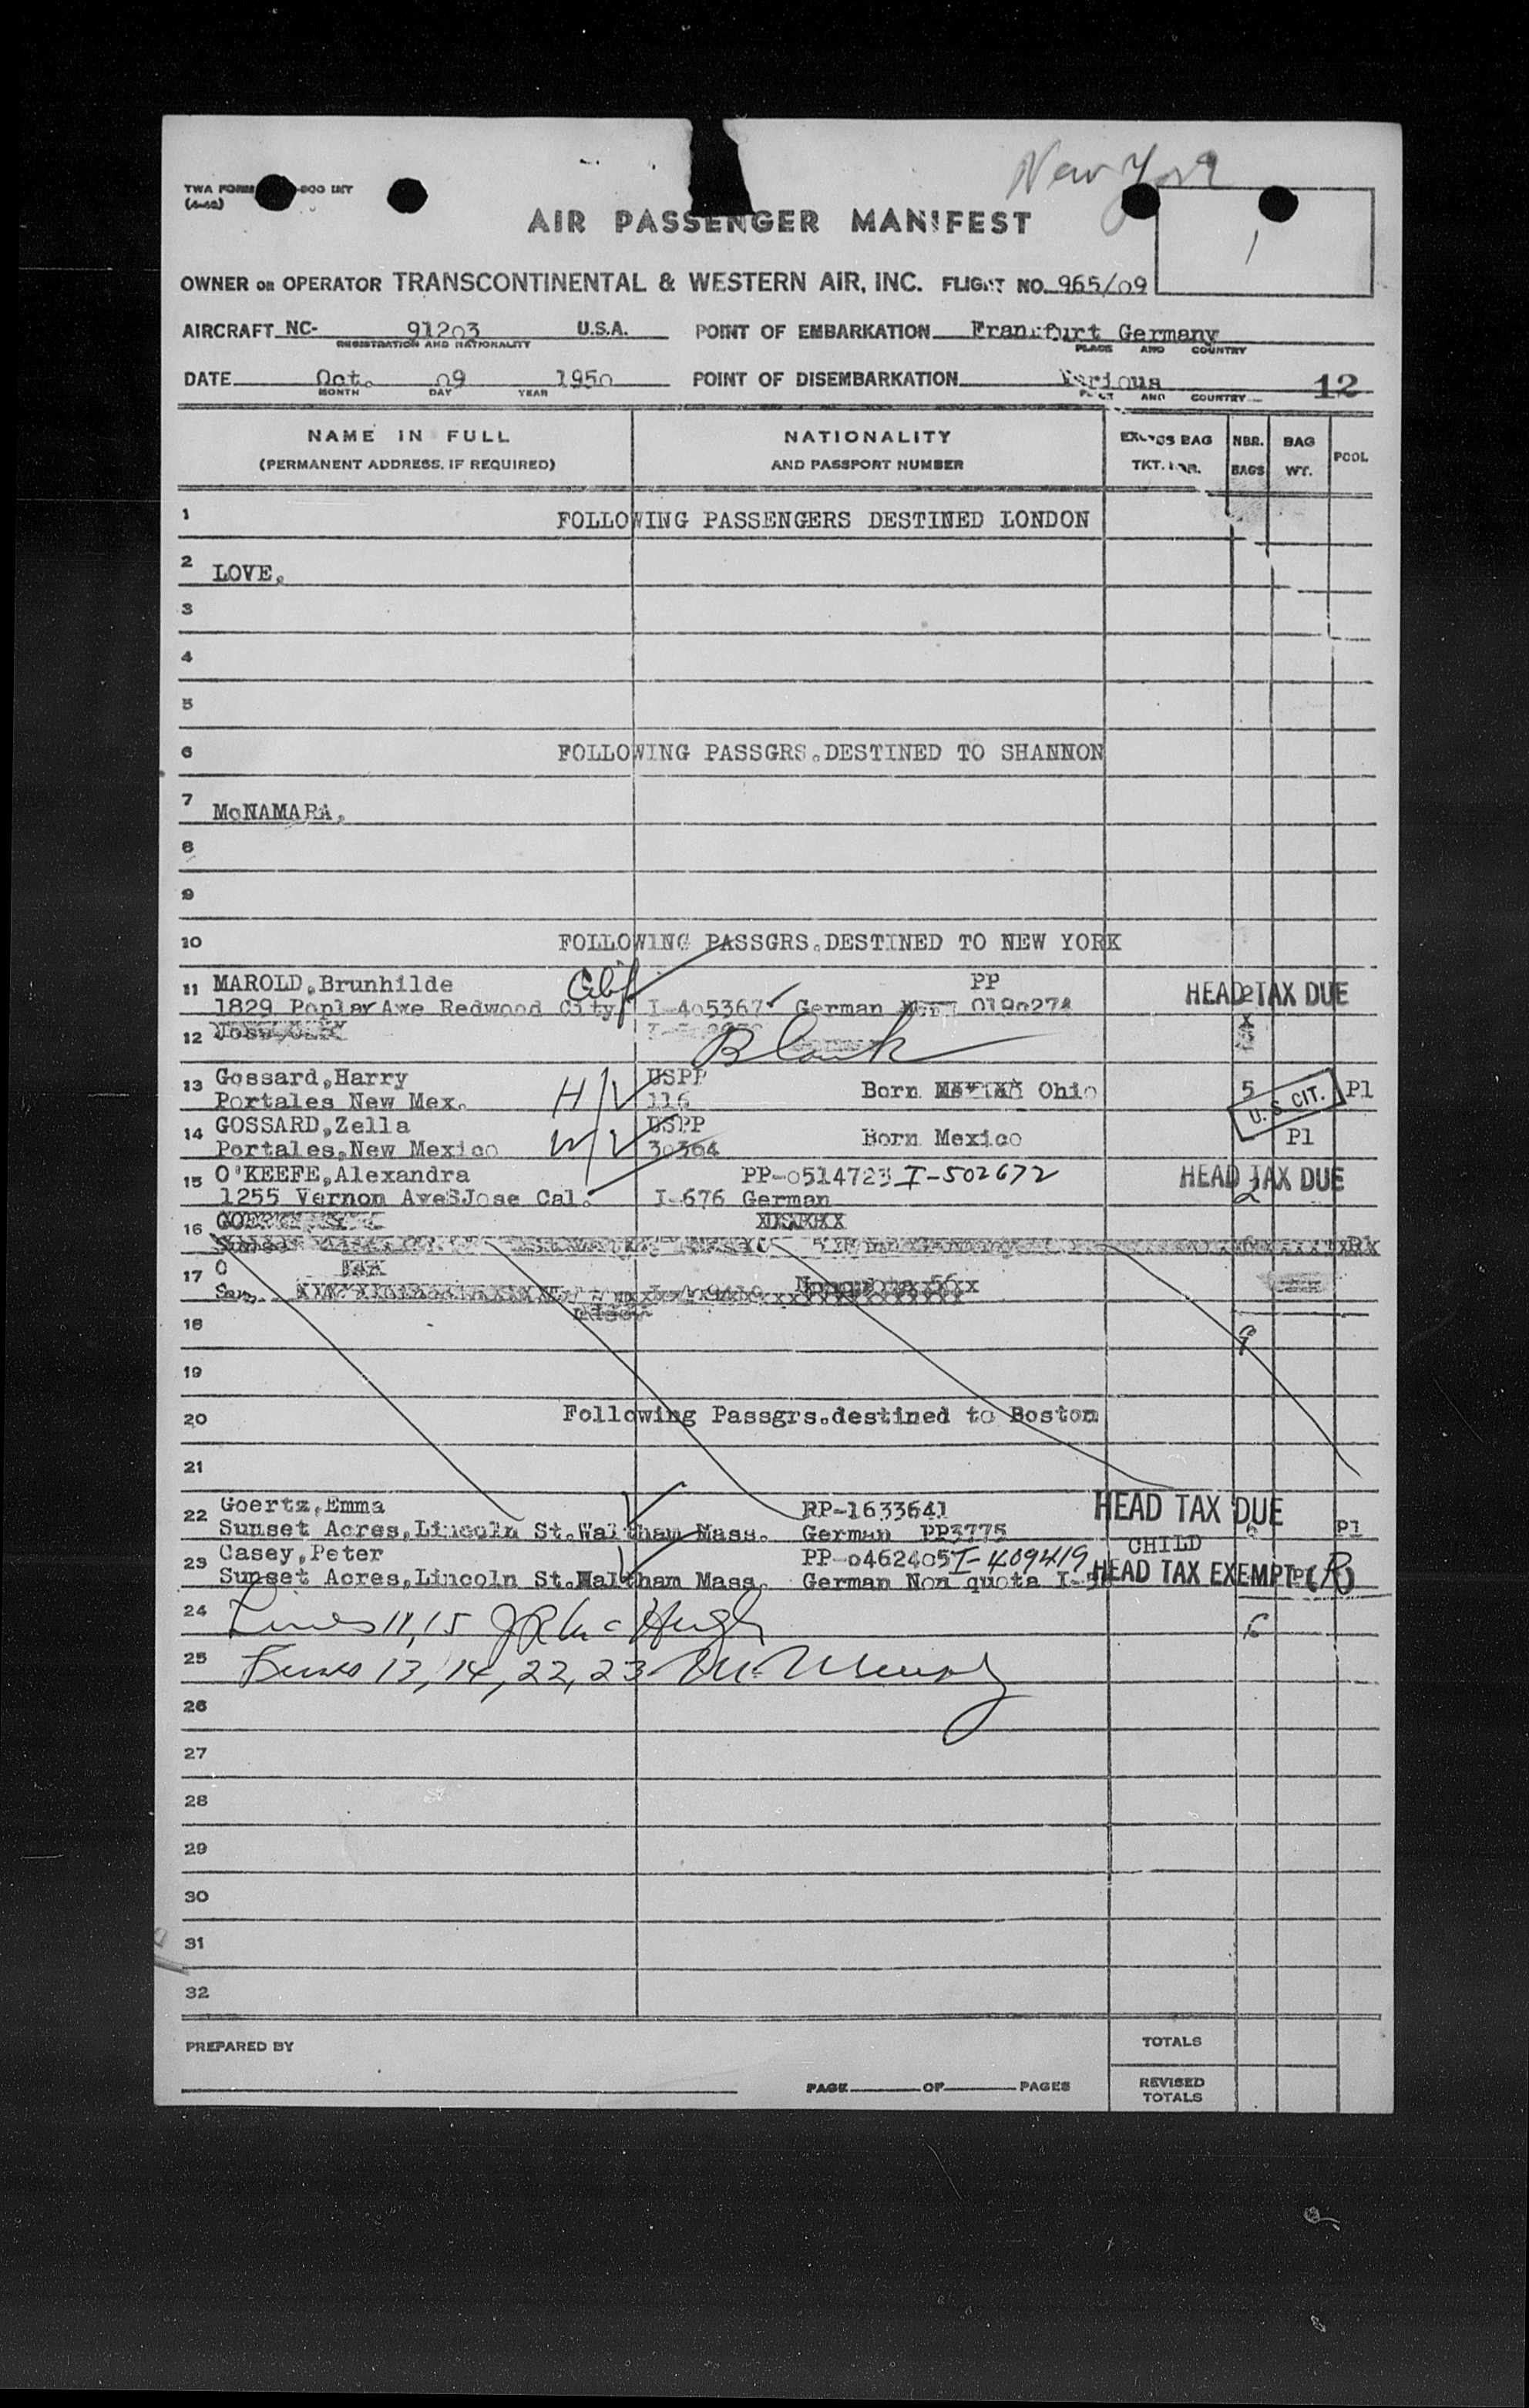 New York
TWA FORM -800 INT
(4-48)
AIR PASSENGER MANIFEST
1
OWNER OR OPERATOR TRANSCONTINENTAL & WESTERN AIR, INC. FLIGHT NO. 965/09
AIRCRAFT NC- 91203 U.S.A. POINT OF EMBARKATION Frankfurt Germany
REGISTRATION AND NATIONALITY PLACE AND COUNTRY
DATE Oct. 09 1950 POINT OF DISEMBARKATION Various 12
MONTH DAY YEAR PLACE AND COUNTRY
NAME IN FULL NATIONALITY EXCESS BAG NBR. BAG POOL
(PERMANENT ADDRESS, IF REQUIRED) AND PASSPORT NUMBER TKT. NBR. BAGS WT.
1 FOLLOWING PASSENGERS DESTINED LONDON
2 LOVE.
3
4
5
6 FOLLOWING PASSGRS.DESTINED TO SHANNON
7 McNAMARA.
8
9
10 FOLLOWING PASSGRS.DESTINED TO NEW YORK
11 MAROLD,Brunhilde PP HEAD TAX DUE 2
1829 Poplar Ave Redwood City I-405367 German
12 Blank
13 Gossard,Harry H/ USPP Born Ohio 5 U.S. CIT. Pl
Portales New Mex. 116
14 GOSSARD,Zella W/ USPP Born Mexico Pl
Portales,New Mexico 30364
15 O'KEEFE,Alexandra PP-0514723 I-502672 HEAD TAX DUE
1255 Vernon AveSJose Cal. I-676 German 2
16
17
18 9
19
20 Following Passgrs.destined to Boston
21
22 Goertz,Emma RP-1633641 HEAD TAX DUE
Sunset Acres,Lincoln St.Waltham Mass. German PP3775 Pl
23 Casey,Peter PP-0462405 I-409419 CHILD
Sunset Acres,Lincoln St.Waltham Mass. German Non quota I-5 HEAD TAX EXEMPT (R)
24 Lines 11, 15 J R McHugh 6
25 Lines 13, 14, 22, 23
26
27
28
29
30
31
32
PREPARED BY TOTALS
PAGE OF PAGES REVISED
TOTALS